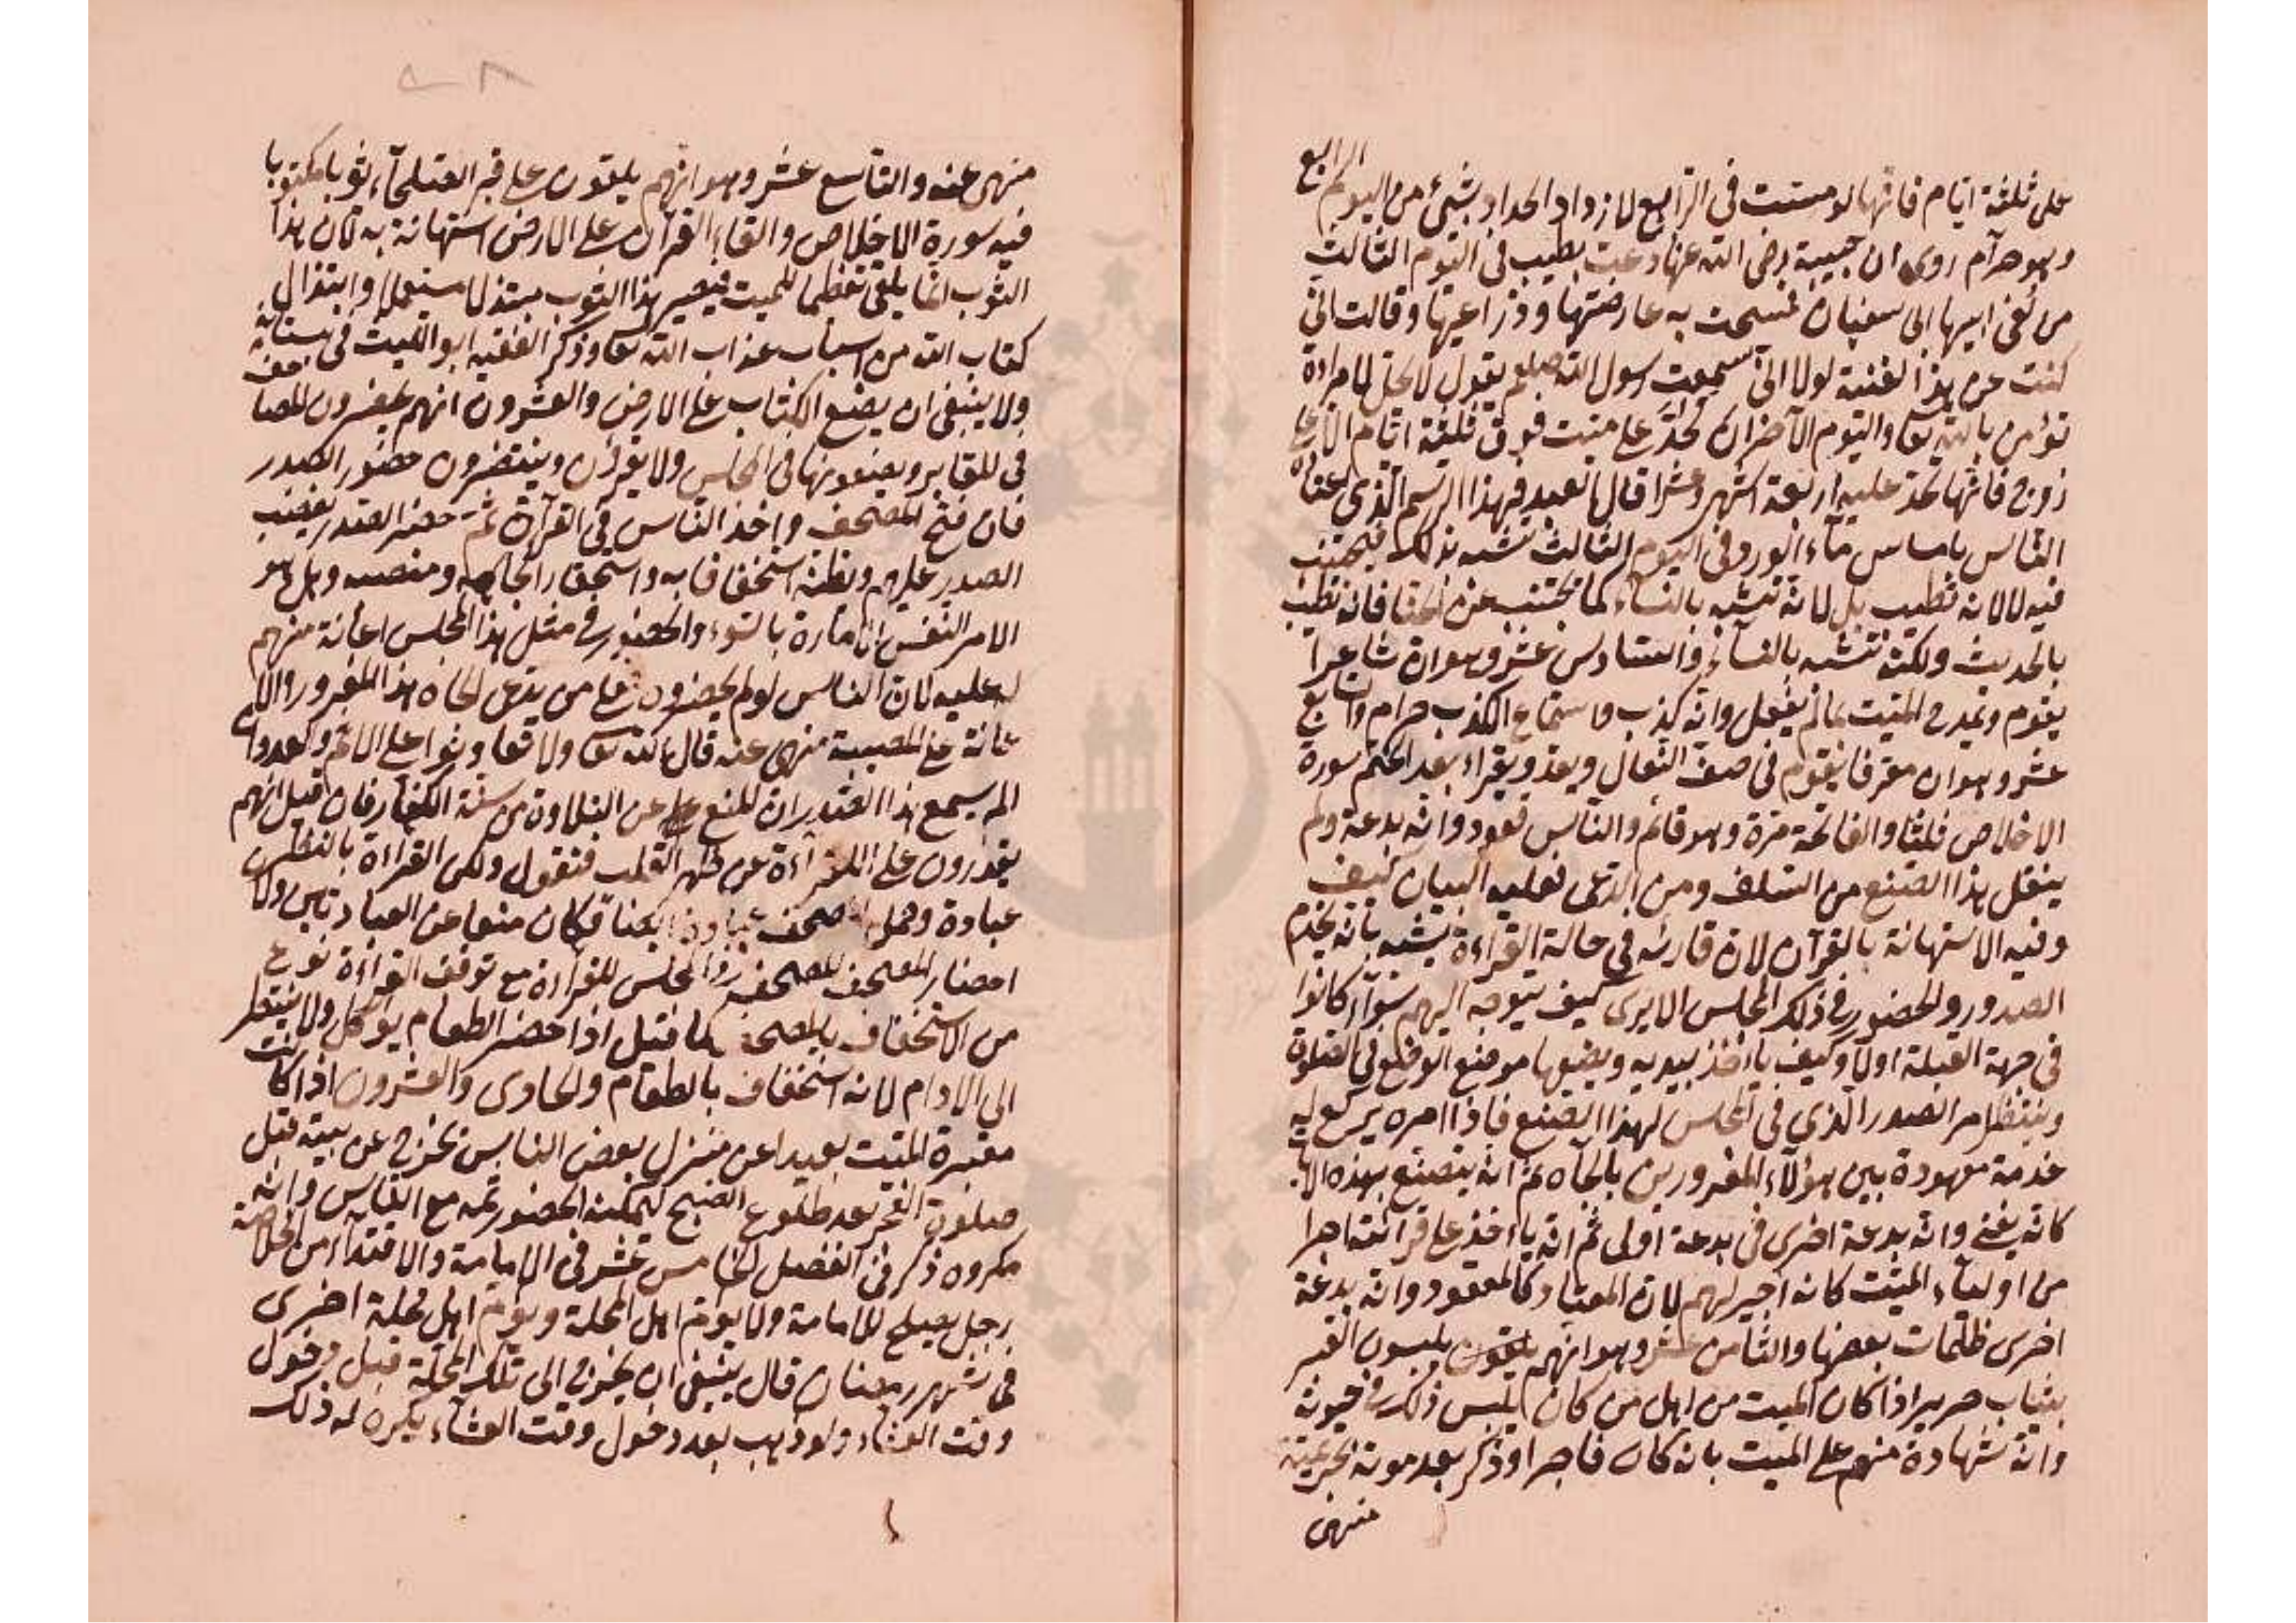 على ثلثة ايام فانها لو مست في الرابع لازداد الحداد بشئ من اليوم الرابع
وهو حرام روى ان حبيبة رضى الله عنها دعت بطيب في اليوم الثالث
من نعى ابيها ابى سفيان فمسحت به عارضتها وذراعيها وقالت انى
كنت عن هذا لغنية لولا انى سمعت رسول الله صلعم يقول لا يحل لامراءة
تؤمن بالله تعا واليوم الآخر ان تحد على ميت فوق ثلثة ايام الا على
زوج فانها تحد عليه اربعة اشهر وعشرا قال العبد فهذا الرسم الذى اعتاده
الناس بامساس ماء الورد في اليوم الثالث تشبه بذلك فيجتنب
فيه لا لانه تطيب بل لانه تشبه بالنساء كما يجتنب عن الحنا فانه تطيب
بالحديث ولكنه تشبه بالنساء والسادس عشر وهو ان شاعرا
يقوم ويمدح الميت بما لم يفعل وانه كذب واستماع الكذب حرام والسابع
عشر وهو ان معرفا يقوم في صف النعال ويعد ويقراء بعد الختم سورة
الاخلاص ثلثا والفاتحة مرة وهو قائم والناس قعود وانه بدعة ولم
ينقل هذا الصنع من السلف ومن ادعى فعليه البيان كيف
وفيه الاستهانة بالقرآن لان قارئه في حالة القراءة يشبه بانه يخدم
الصدور والحضور في ذلك المجلس الا يرى كيف يتوجه اليهم سواء كانوا
في جهة القبلة اولا وكيف ياءخذ بيديه ويضعها موضع الوضع في الصلوة
وينتظر امر الصدر الذي في المجلس لهذا الصنع فاذا امره يركع له
خدمة معهودة بين هؤلاء المغرورين بالجاه ثم انه يتصنع بهذه
كانه يغنى وانه بدعة اخرى في بدعة اولى ثم انه ياءخذ على قرائته اجرا
من اولياء الميت كانه اجير لهم لان المعتاد كالمعقود وانه بدعة
اخرى ظلمات بعضها والثامن عشر وهو انهم يلبسون القبر
بثياب حرير اذا كان الميت من اهل من كان يلبس ذلك في حيوته
وانه شهادة منهم على الميت بانه كان فاجرا وذكر بعد موته
منهى
منهى عنه والتاسع عشر وهو انهم يلقون على قبر الصلحاء ثوبا مكتوبا
فيه سورة الاخلاص والقاء القرآن على الارض استهانة به لان هذا
الثوب انما يلقى تعظيما للميت فيصير هذا الثوب مبتذلا مستعملا وابتذال
كتاب الله من اسباب عذاب الله تعا وذكر الفقيه ابو الليث في بستانه
ولا ينبغى ان يضع الكتاب على الارض والعشرون انهم يحضرون المصاحف
في المقابر ويضعونها في المجالس ولا يقرؤن وينتظرون حضور الصدر
فان فتح المصحف واخذ الناس في القرآن ثم حضر الصدر يغضب
الصدر عليهم ويظنه استخفافا به واستحقارا لجاهه ومنصبه وهل هو
الا من النفس الامارة بالسوء والحضور في مثل هذا المجلس اعانة منهم
له عليه لان الناس لو لم يحضرون فعلى من يدعى الجاه هذا المغرور والا
عانة على المعصية منهى عنه قال الله تعا ولا تعاونوا على الاثم والعدوان
الم يسمع هذا الصدر ان المنع عن التلاوة من سنة الكفار فان قيل انهم
يقدرون على القراءة عن ظهر القلب فنقول ولكن القراءة بالنظر
عبادة وحمل المصحف عبادة ايضا فكان منعا عن العبادتين ولان
احضار المصحف المجلس للقراءة مع توقف القراءة نوع
من الاستخفاف بالمصحف كما قيل اذا حضر الطعام يؤكل ولا ينتظر
الى الادام لانه استخفاف بالطعام والحادى والعشرون اذا كانت
مقبرة الميت بعيدا عن منزل بعض الناس يخرج عن بيته قبل
صلوة الفجر بعد طلوع الصبح ليمكنه الحضور ثمه مع الناس وانه
مكروه ذكر في الفصل الخامس عشر في الامامة والاقتداء من الخلاصة
رجل يصلح للامامة ولا يؤم اهل المحلة ويؤم اهل محلة اخرى
في شهر رمضان قال ينبغى ان يخرج الى تلك المحلة قبل دخول
وقت العشاء ولو ذهب بعد دخول وقت العشاء يكره له ذلك